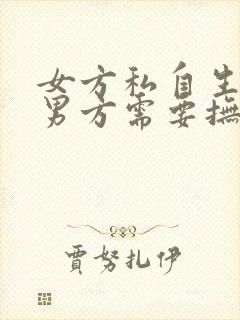 女方私自生
男方需要撫
賈努扎伊